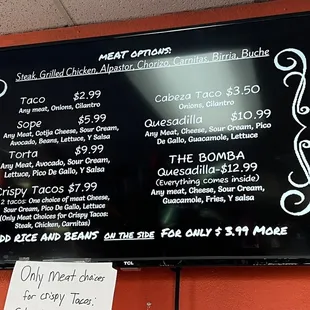 MEAT OPTIONS:
Steak, Grilled Chicken, Alpastor, Chorizo, Carnitas, Birria, Buche
Taco $2.99
Any meat, Onions, Cilantro
Sope $5.99
Any Meat, Cotija Cheese, Sour Cream,
Avocado, Beans, Lettuce, Y Salsa
Torta $9.99
Any Meat, Avocado, Sour Cream,
Lettuce, Pico De Gallo, Y Salsa
Crispy Tacos $7.99
2 tacos: One choice of meat Cheese,
Sour Cream, Pico De Gallo, Lettuce
(Only Meat Choices for Crispy Tacos:
Steak, Chicken, Carnitas)
Cabeza Taco $3.50
Onions, Cilantro
Quesadilla $10.99
Any Meat, Cheese, Sour Cream, Pico
De Gallo, Guacamole, Lettuce
THE BOMBA
Quesadilla-$12.99
(Everything comes inside)
Any meat, Cheese, Sour Cream,
Guacamole, Fries, Y salsa
DD RICE AND BEANS ON THE SIDE FOR ONLY $ 3.99 MORE
TCL
Only Meat choices
for crispy Tacos: